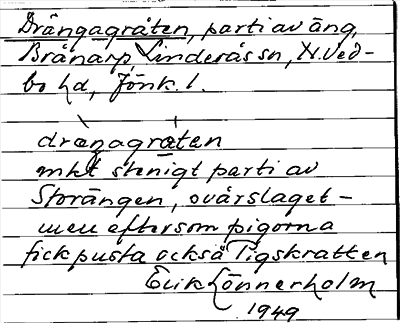 Drängagråten, parti av äng,
Brånarp, Linderås sn, N. Ved-
bo hd, Jönk. l.
drængagræten
mkt stenigt parti av
Storängen, ovårslaget –
men eftersom pigorna
fick pusta också Pigskratten
Erik Lönnerholm
1949